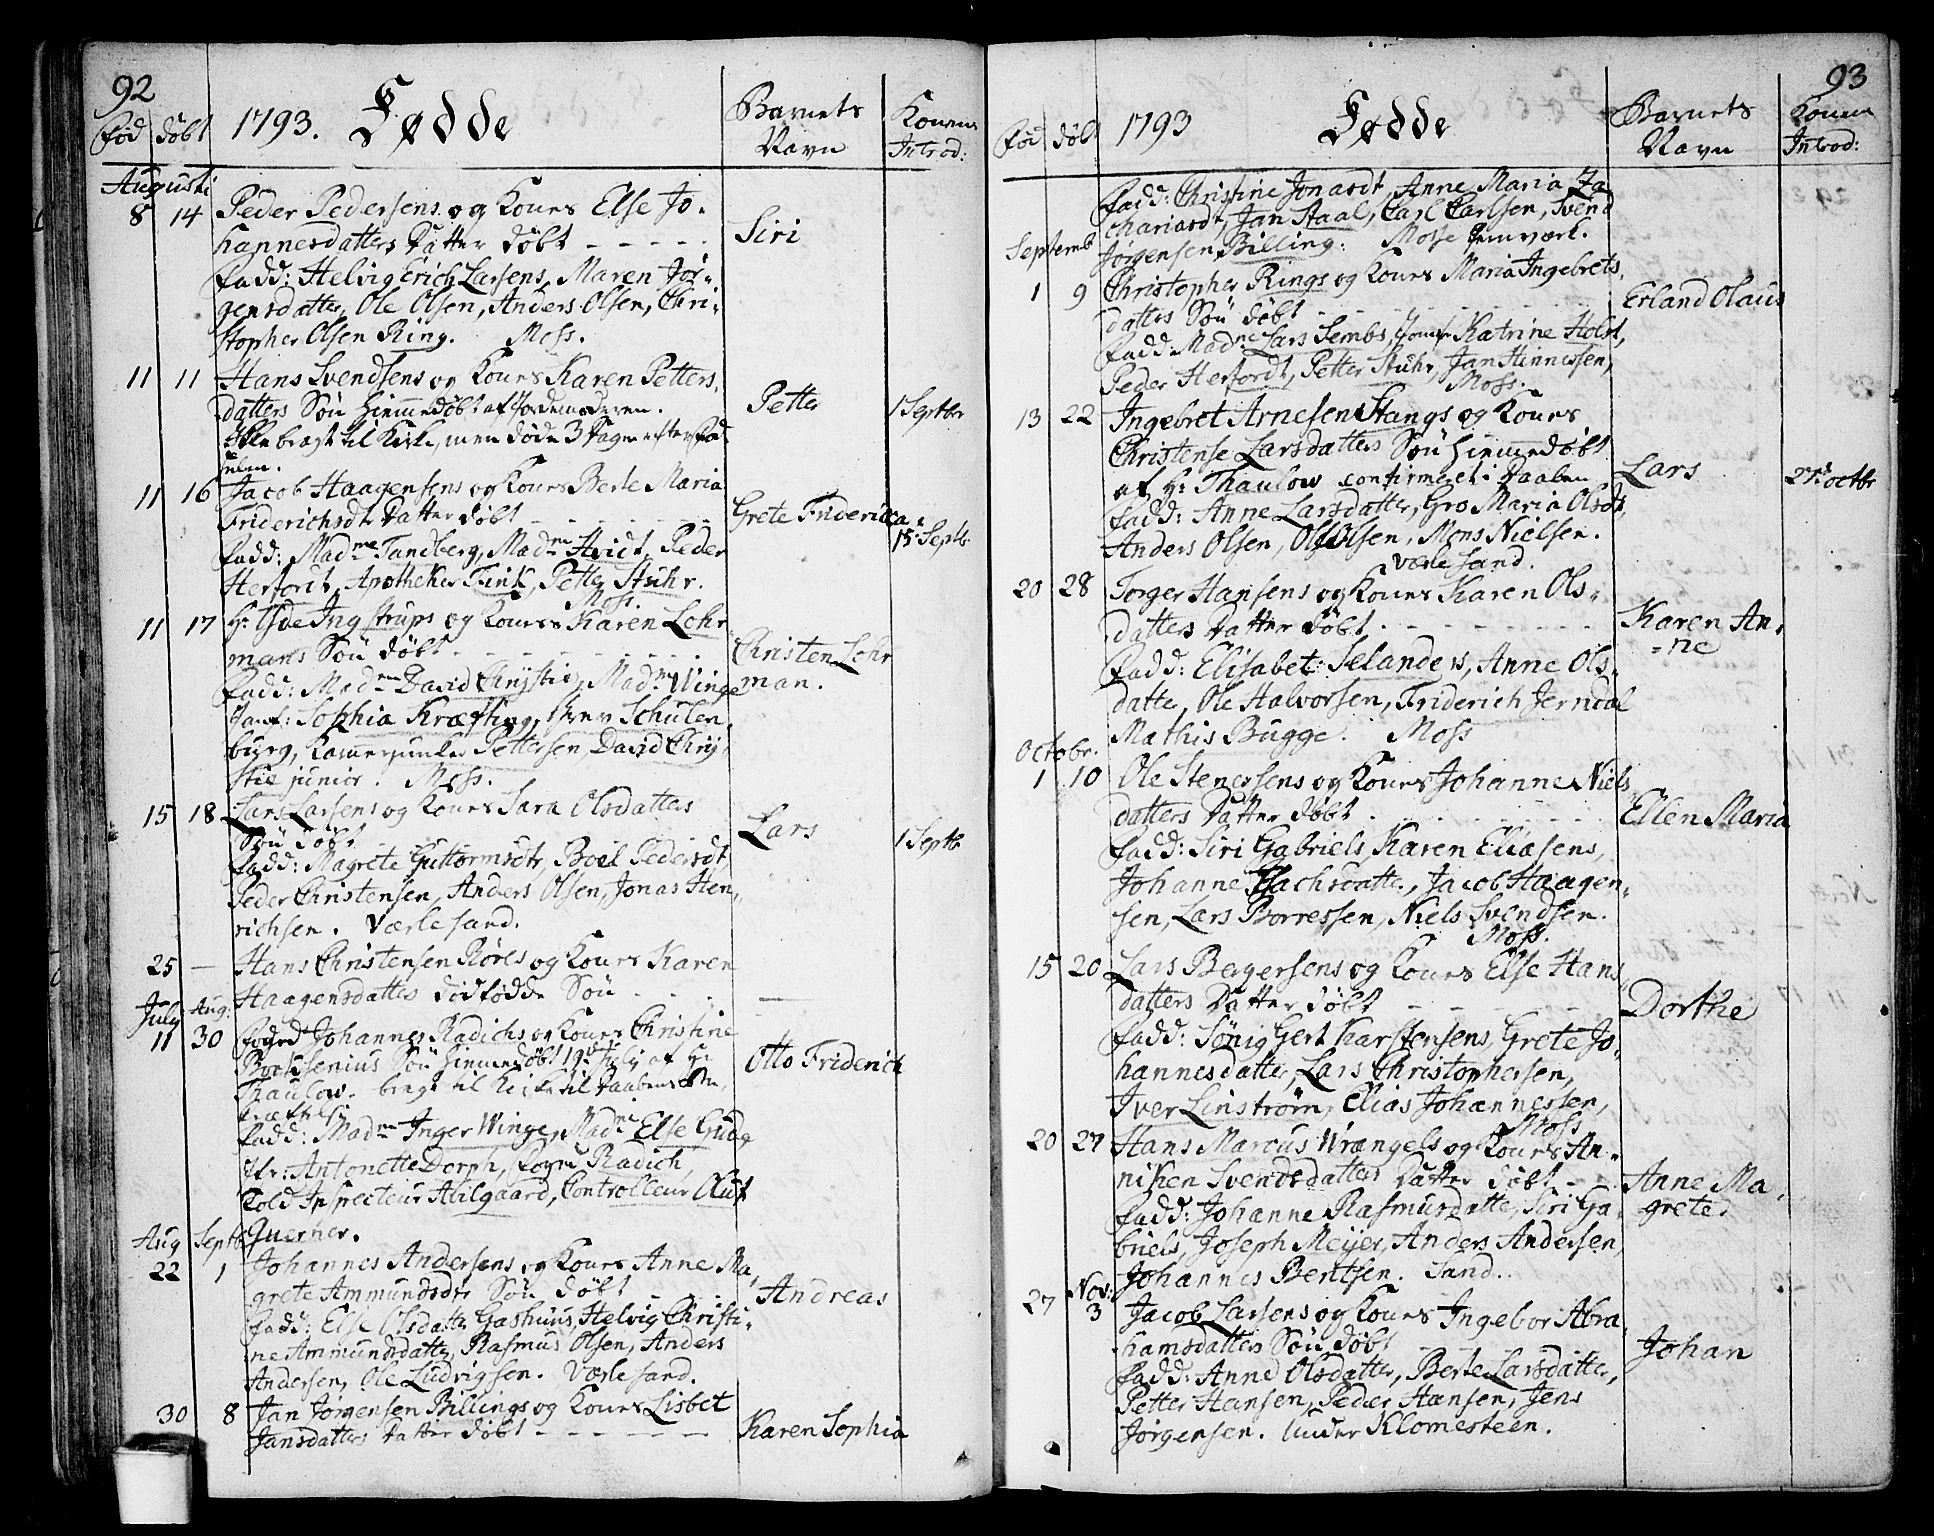 92
fød døbt 1793. Fødde Barnets Navn Konens Introd:
Augusti
8 14 Peder Pedersens og Kones Else Jo-
hannesdatters Datter døbt - - - - - Siri
fadd: Helvig Erich Larsens, Maren Jør-
gensdatter, Ole Olsen, Anders Olsen, Chri-
stopher Olsen Ring. Moss.
11 11 Hans Svendsens og Kones Karen Petters
datters Søn hiemmedøbt af Jordemoderen. Petter 1 Septbr
Ikke bragt til Kirke, men døde 3 Dage efter fød
selen.
11 16 Jacob Haagensens og Kones Berte Maria
Friderichsdtr Datter døbt - - - - Grete Friderica
15 Septb
fadd: Madme Tandberg, Madme Hvidt, Peder
Herfordt, Apotheker Funk, Petter Stuhr.
Moss
11 17 Hr Ude Ingstrups og Kones Karen Lohr
mans Søn døbt - - - - - Christen Lohr
fadd: Madme David Chrystie, Madme Winge man.
Jomf: Sophia Kræfting, Schulen
burg, Kammerjunker Pettersen, David Chry
stie junior. Moss.
15 18 Lars Larsens og Kones Sara Olsdatters
Søn døbt Lars 1 Septb
fadd: Magrete Guttormsdtr, Boel Pedersdt,
Peder Christensen, Anders Olsen, Jonas Hen-
richsen. Værlesand.
25 — Hans Christensen Røres og Kones Karen
Haagensdatters dødfødde Søn - - - —
July Aug:
11 30 Foged Johannes Radichs og Kones Christine
Bocksenius Søn hiemmedøbt 19de July af Hr Otto Friderich
Thaulow. bragt til Kirke til Daabens Be
kræftelse
fadd: Madme Inger Winge, Madme Else Gude
Fr: Antonette Dorph, Foged Radich,
Told Inspecteur Abilgaard, Controlleur Oluf
Aug Septb Querner.
22 1 Johannes Andersens og Kones Anne Ma
grete Ammundsdtr Søn døbt - - - Andreas
fadd: Else Olsdatter Gashuus, Helvig Christi-
ne Ammundsdatter, Rasmus Olsen, Anders
Andersen, Ole Ludvigsen. Værlesand.
30 8 Jan Jørgensen Billings og Kones Lisbet
Jansdatters Datter døbt - - - - - - Karen Sophia
93
fød døbt 1793 Fødde Barnets Navn Konens Introd:
fadd: Christine Jonasdt, Anne Maria Za
chariasdt, Jan Staal, Carl Carlsen, Svend
Septemb Jørgensen Billing: Mosse Jernværk.
1 9 Christopher Rings og Kones Maria Ingebrets
datters Søn døbt - - - - - Erland Olaus
fadd: Madme Lars Sembs, Jomfr Katrine Holst,
Peder Herfordt, Petter Stuhr, Jan Hennissen,
Moss.
13 22 Ingebret Arnesen Stangs og Kones
Christense Larsdatters Søn hiemmedøbt
af Hr Thaulow confirmeret i Daaben Lars 27. octbr
fadd: Anne Larsdatter, Gro Maria Olsdt,
Anders Olsen, Olsen, Mons Nielsen.
Værlesand.
20 28 Torger Hansens og Kones Karen Ols-
datters Datter døbt - - - - - - Karen An-
=ne
fadd: Elisabet Selanders, Anne Ols-
datter, Ole Halvorsen, Friderich Jerndal
Mathis Bugge. Moss
Octobr.
1 10 Ole Stenersens og Kones Johanne Niels
datters Datter døbt - - - - Ellen Maria
fadd: Siri Gabriels, Karen Eliasens,
Johanne Isachsdatter, Jacob Haagen-
sen, Lars Borressen, Niels Svendsen.
Moss.
15 20 Lars Bergersens og Kones Else Hans
datters Datter døbt - - - - - Dorthe
fadd: Sønig Gert Karstensens, Grete Jo-
hannesdatter, Lars Christophersen,
Iver Linstrøm, Elias Johannessen,
Moss
20 27 Hans Marcus Wrangels og Kones An-
niken Svendsdatters Datter døbt - - Anne Ma
fadd: Johanne Rasmusdatter, Siri Ga- grete
briels, Joseph Meijer, Anders Andersen,
Johannes Bentsen. Sand.
Nov:
27 3 Jacob Larsens og Kones Ingebor Abra
hamsdatters Søn døbt Johan
fadd: Anne Olsdatter, Berte Larsdatter,
Petter Hansen, Peder Hansen, Jens
Jørgensen. Under Klomesteen.